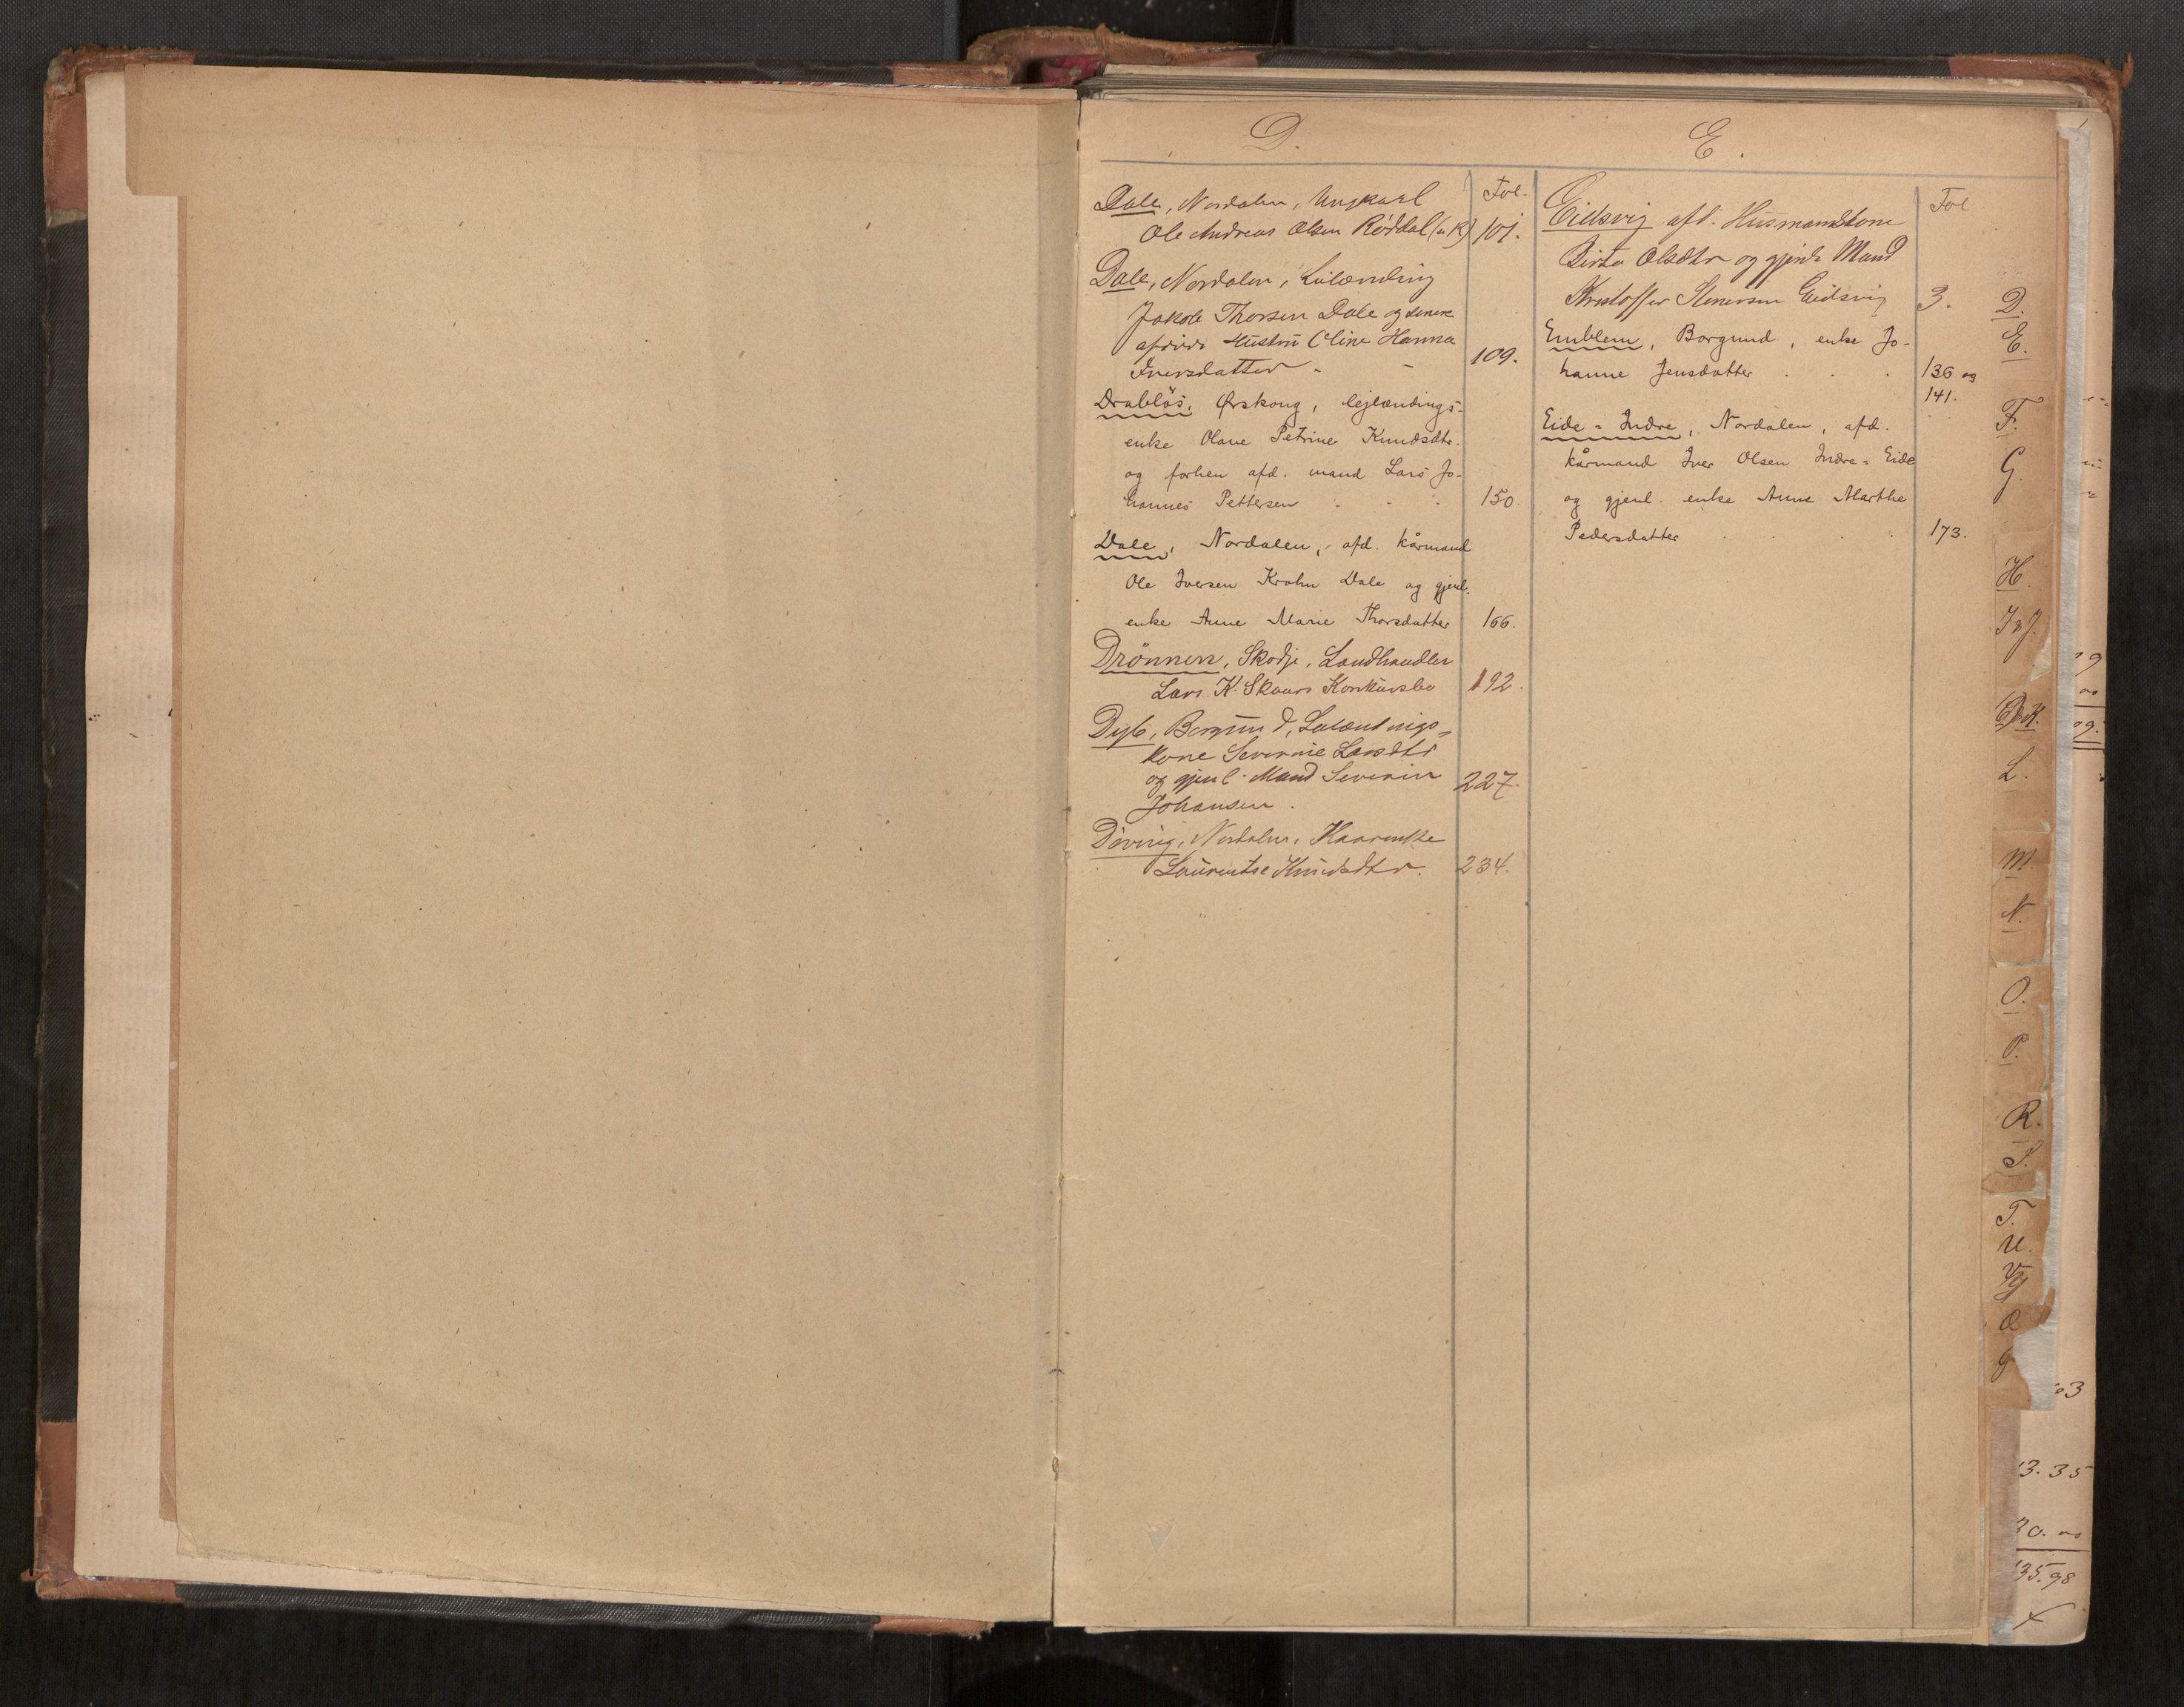 D.
Fol.
Dale, Nordalen, Ungkarl
Ole Andreas Olsen Røddal (u K) 101.
Dale, Nordalen, Leilænding
Jakob Thorsen Dale og senere
afdøde Hustru Oline Hanna
Iversdatter - - 109.
Drabløs, Ørskoug, lejlændings-
enke Olave Petrine Knudsdtr.
og forhen afd. mand Lars Jo-
hannes Pettersen . . . 150.
Dale, Nordalen, afd. kårmand
Ole Iversen Krohn Dale og gjenl.
enke Anne Marie Thorsdatter 166.
Drönnen, Skodje, Landhandler
Lars K. Skaars Konkursbo 192.
Dyb, Borgund, Leilændings-
kone Severine Larsdtr
og gjenl. Mand Severin 227.
Johansen .
Döving, Nordalen, Kaarenke
Laurentse Knudsdtr. 234.
E.
Fol
Eidsvig afd. Husmandskone
Birte Olsdtr og gjenl. Mand
Kristoffer Stenersen Eidsvig 3.
Emblem, Borgund, enke Jo-
hanne Jensdatter . . . 136 og
141.
Eide = Indre, Nordalen, afd.
kårmand Iver Olsen Indre = Eide
og gjenl. enke Anne Marthe
Pedersdatter . . . 173.
D.
E.
F.
G.
H.
I & J.
K.
L.
M.
N.
O.
P.
R.
S.
T.
U.
Æ
Ø
13.35
30.
135.98